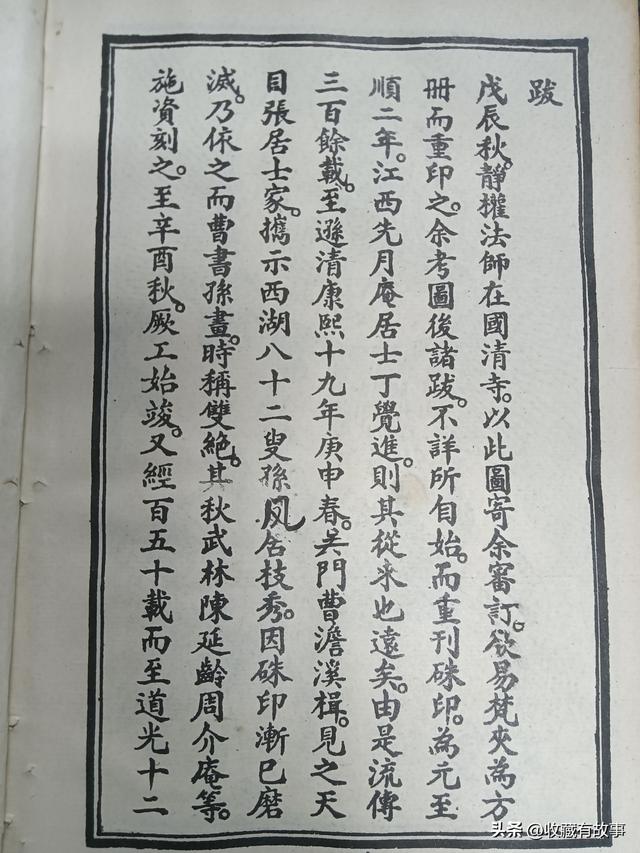 跋
戊辰秋。靜權法師在國清寺。以此圖寄余審訂。欲易梵夾為方
冊而重印之。余考圖後諸跋。不詳所自始。而重刊硃印。為元至
順二年。江西先月庵居士丁覺進。則其從来也遠矣。由是流傳
三百餘載。至遜清康熙十九年庚申春。吴門曹澹溪楫。見之天
目張居士家。攜示西湖八十二叟孫夙唇枝秀。因硃印漸已磨
滅。乃依之而曹書孫畫。時稱雙絕。其秋武林陳延齡周介庵等。
施資刻之。至辛酉秋。厥工始竣。又經百五十載而至道光十二
头条 @收藏有故事